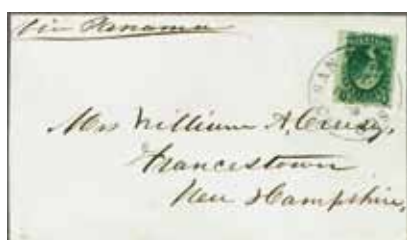 Via Panama
SAN
Mrs William A.
Francestown
New Hampshire,